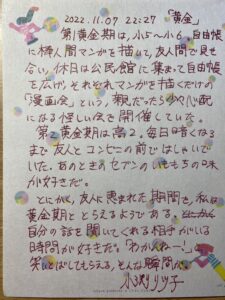 2022.11.07 22:27 「黄金」
第1黄金期は、小5〜小6。自由帳
に棒人間マンガを描いて、友人間で見せ
合い、休日は公民館に集まって自由帳
を広げ、それぞれマンガを描くだけの
「漫画会」という、親だったら少々心配
になる怪しい会を開催していた。
第2黄金期は高2。毎日暗くなる
まで友人とコンビニの前ではしゃいで
いた。あのときのセブンのいももちの味
が好きだ。
とにかく、友人に恵まれた期間を、私は
黄金期ととらえるようである。
自分の話を聞いてくれる相手がいる
時間が好きだ。「わかんねー!」と
笑いとばしてもらえる、そんな瞬間が。
小沢リツ子